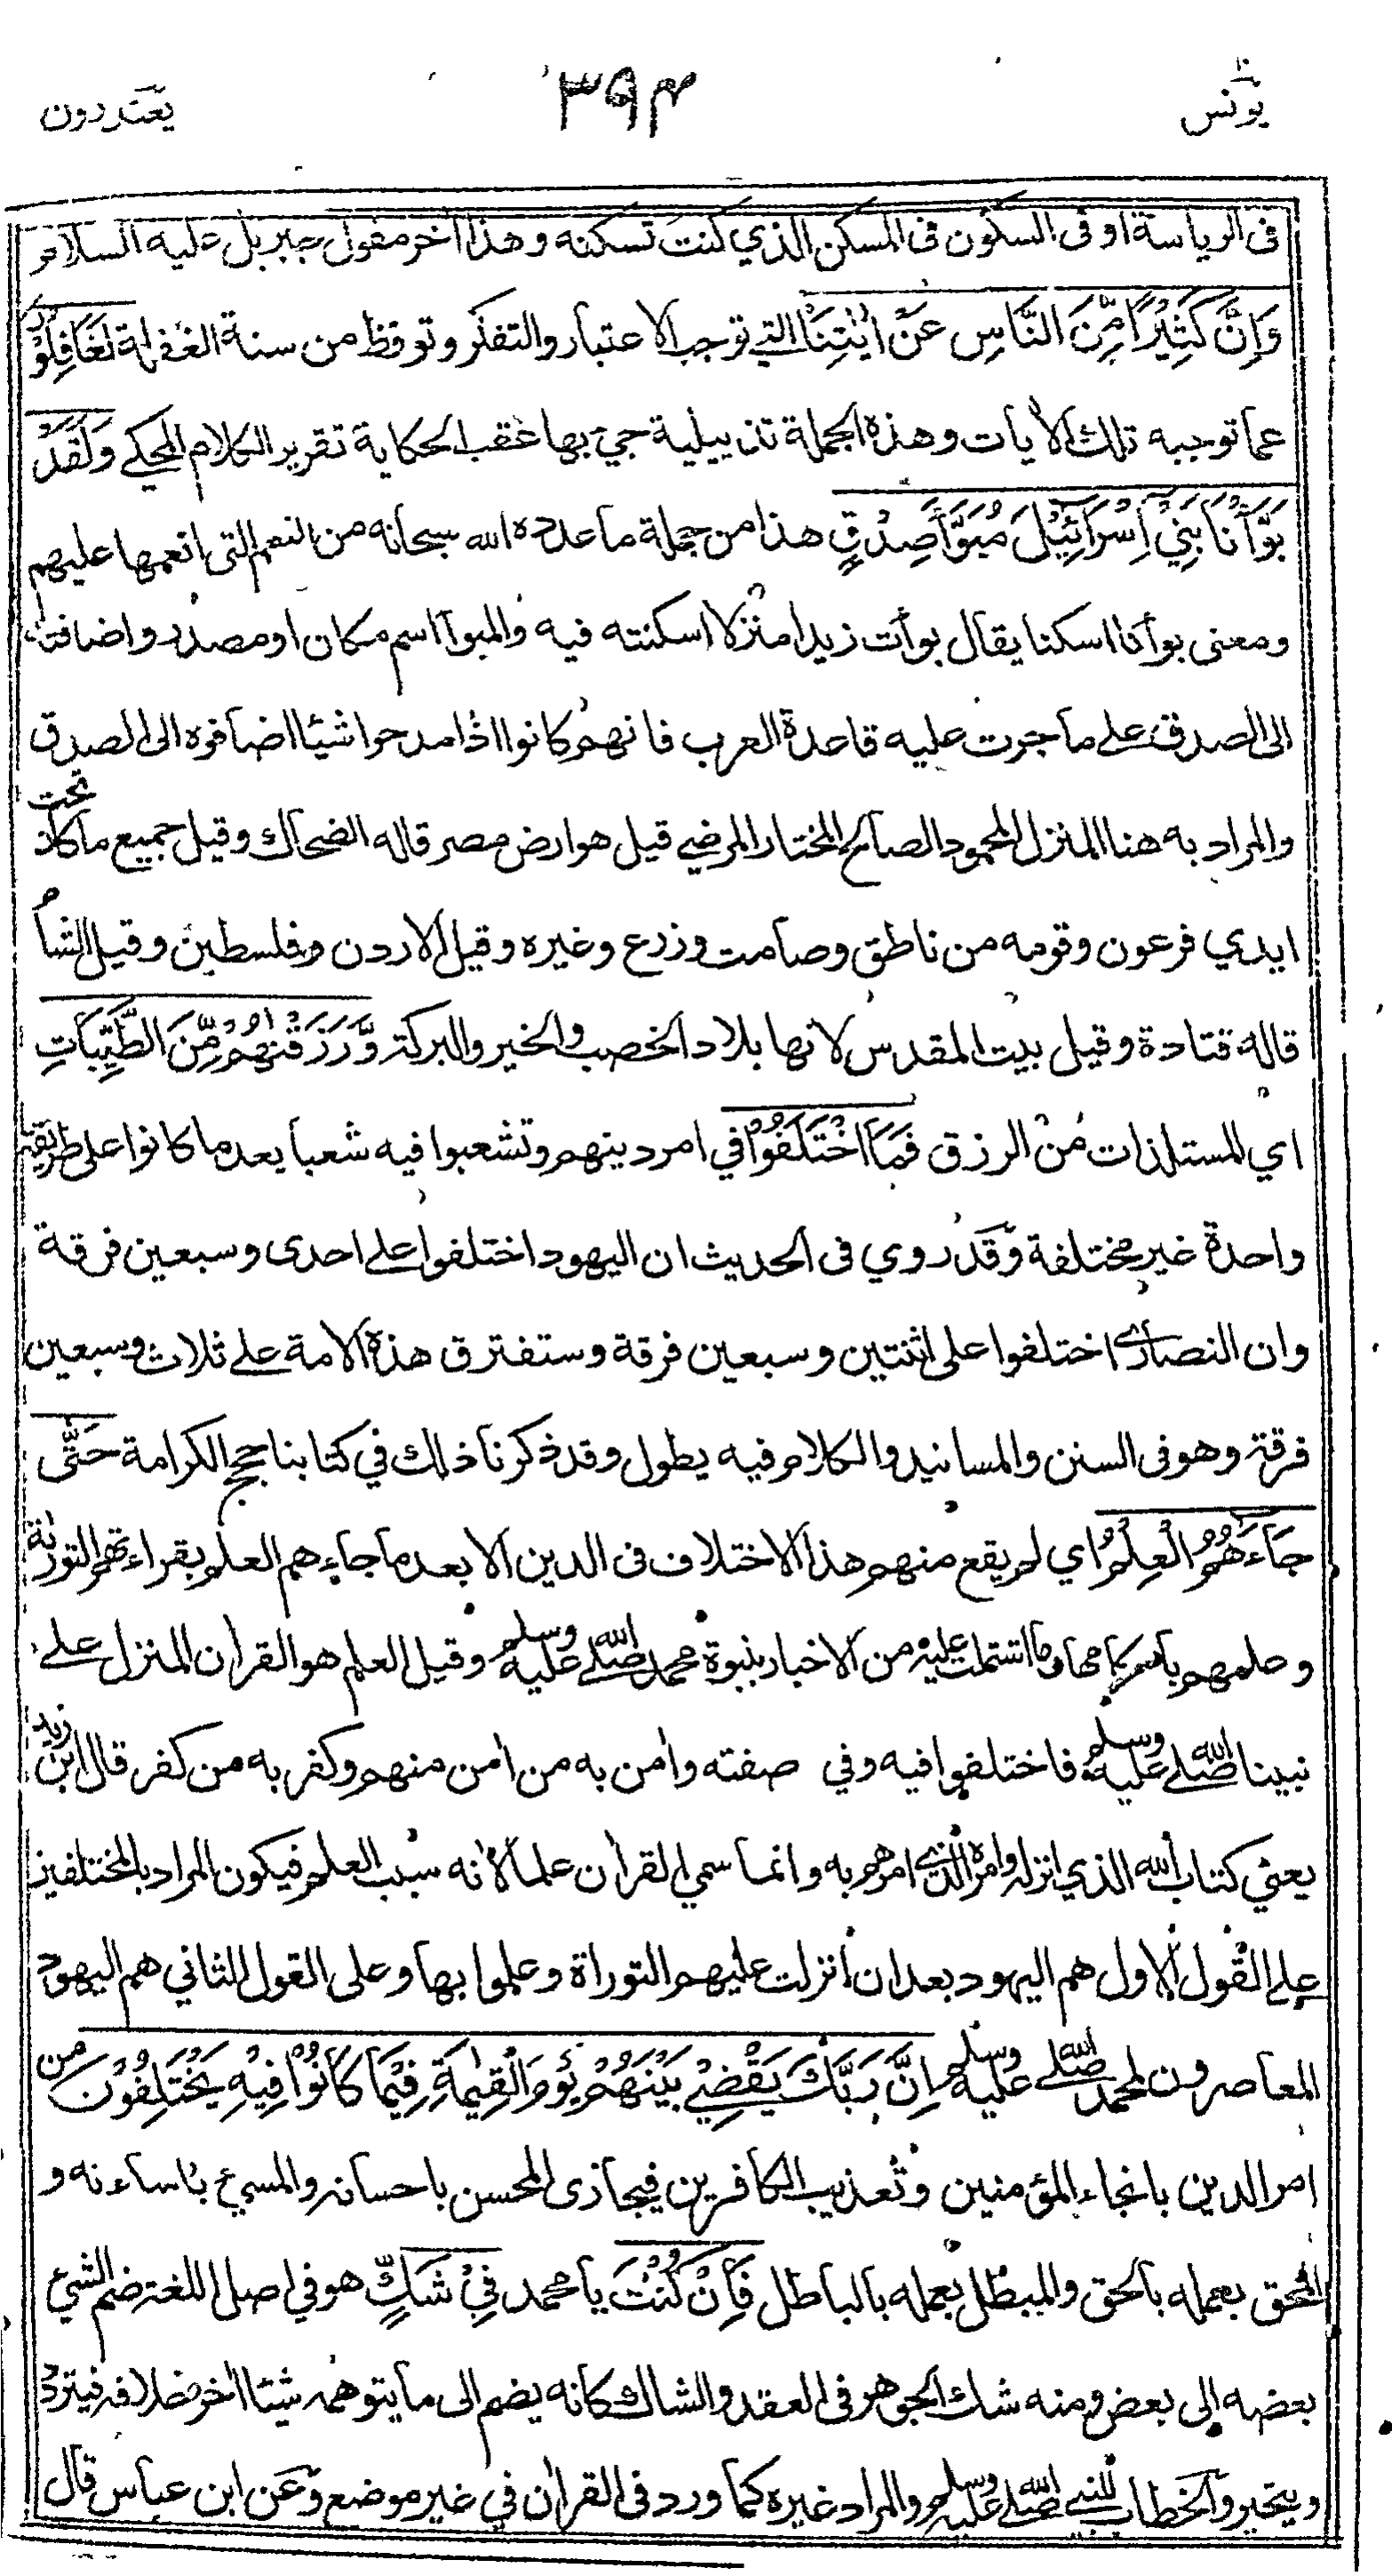 يونس ١٠
٣٩٤
يعتذرون
فى الرياسة او فى السكون فى المسكن الذي كنت تسكنه وهذا أخر مقول جبريل عليه السلام
وَاِنَّ كَثِيْرًا مِّنَ النَّاسِ عَنْ اٰيٰتِنَا التي توجب الاعتبار والتفكر وتوقظ من سنة الغفلة لَغَافِلُوْنَ
عما توجبه تلك الأيات وهذه الجملة تذييلية جيئ بها عقب الحكاية تقرير الكلام المحكي وَلَقَدْ
بَوَّأْنَا بَنِيْٓ اِسْرَآئِيْلَ مُبَوَّاَ صِدْقٍ هذا من جملة ما عدده الله سبحانه من النعم التى انعمها عليهم
ومعنى بوأنا اسكنا يقال بوأت زيدا منزلا اسكنته فيه والمبوأ اسم مكان او مصدر واضافته
الى الصدق على ما جرت عليه قاعدة العرب فانهم كانوا اذا مدحوا شيئا اضافوه الى الصدق
والمراد به هنا المنزل المحمود الصالح المختار المرضي قيل هو ارض مصر قاله الضحاك وقيل جميع ما كان تحت
ايدي فرعون وقومه من ناطق وصامت وزرع وغيره وقيل الاردن وفلسطين وقيل الشام
قاله قتادة وقيل بيت المقدس لانها بلاد الخصب والخير والبركة وَّرَزَقْنٰهُمْ مِّنَ الطَّيِّبَاتِ
اي المستلذات من الرزق فَمَا اخْتَلَفُوْا في امر دينهم وتشعبوا فيه شعبا بعد ما كانوا على طريقة
واحدة غير مختلفة وقد روي فى الحديث ان اليهود اختلفوا على احدى وسبعين فرقة
وان النصارى اختلفوا على اثنتين وسبعين فرقة وستفترق هذه الامة على ثلاث وسبعين
فرقة وهو فى السنن والمسانيد والكلام فيه يطول وقد ذكرنا ذلك في كتابنا حجج الكرامة حَتّٰى
جَآءَهُمُ الْعِلْمُ اي لم يقع منهم هذا الاختلاف فى الدين الا بعد ما جاءهم العلم بقراءتهم التورٰة
وعلمهم باحكامها وما اشتملت عليه من الاخبار بنبوة محمد صلى الله عليه وسلم وقيل العلم هو القران المنزل على
نبينا صلى الله عليه وسلم فاختلفوا فيه وفي صفته وأمن به من أمن منهم وكفر به من كفر قال ابن زيد
يعني كتاب الله الذي انزله وامره الذي امرهم به وانما سمي القرأن علما لانه سبب العلم فيكون المراد بالمختلفين
على القول الاول هم اليهود بعد ان انزلت عليهم التوراة وعلموا بها وعلى القول الثاني هم اليهود
المعاصرون لمحمد صلى الله عليه وسلم اِنَّ رَبَّكَ يَقْضِيْ بَيْنَهُمْ يَوْمَ الْقِيٰمَةِ فِيْمَا كَانُوْا فِيْهِ يَخْتَلِفُوْنَ من
امر الدين بانجاء المؤمنين وتعذيب الكافرين فيجازى المحسن باحسانه والمسيئ باساءته و
المحق بعمله بالحق والمبطل بعمله بالباطل فَاِنْ كُنْتَ يا محمد فِيْ شَكٍّ هو في اصل اللغة ضم الشيئ
بعضه الى بعض ومنه شك الجوهر فى العقد والشاك كانه يضم الى ما يتوهمه شيئا أخر خلافه فيتردد
ويتحير والخطاب للنبي صلى الله عليه وسلم والمراد غيره كما ورد فى القران في غير موضع وعن ابن عباس قال